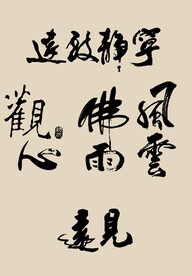 寧靜致遠
風雲
佛雨
觀心
遠見